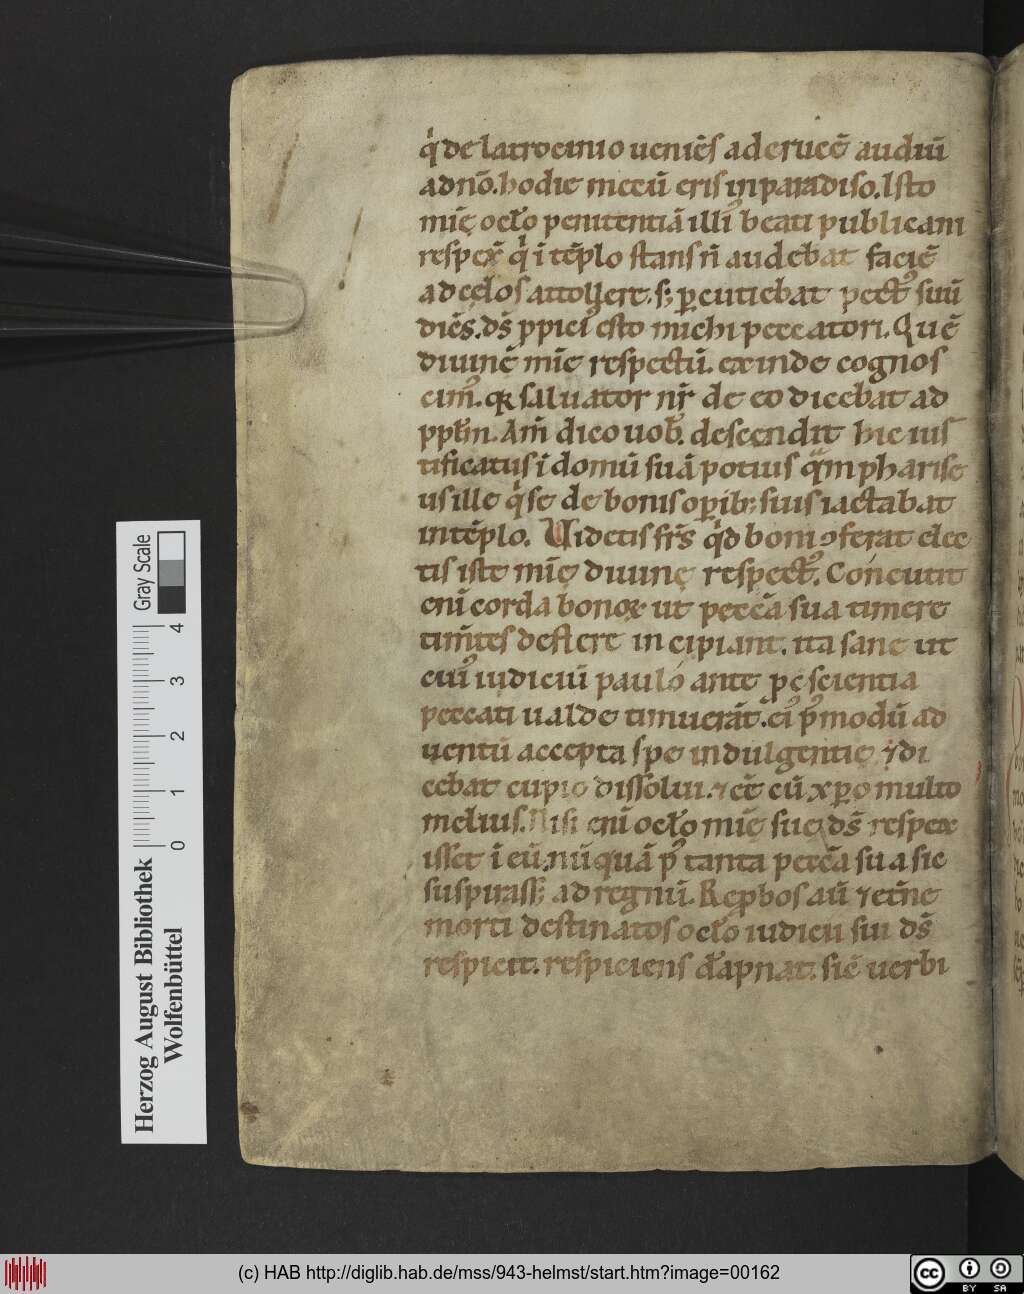 q̇ de latrocinio ueniēs ad crucē audiū
a dn̄o. hodie mecū eris in paradiso. Isto
mīe ocło penitentiā illi᷒ beati publicani
respex̄ q̇ ī tēplo stans n̄ audebat faciē
ad cęlos attollere. s; ꝑcutiebat pect᷒ suū
dicēs. ds̄ ꝓpici᷒ esto michi peccatori. Quē
diuinę mīe respectū. exinde cognos
cim᷒. qꝛ saluator nr̄ de eo dicebat ad
ppłm. Am̄ dico uob̄. descendit hic ius
tificatus ī domū suā potius qᷓm pharise
us ille q̇ se de bonis oꝑib; suis iactabat
in tēplo. Videtis frs̄ q̇d boni ꝯferat elec
tis iste mīe diuinę respect᷒. Concutit
enī corda bonoꝝ ut peccā sua timere
timītes deflere incipiant. ita sane ut
eiu᷒ iudiciū paulo ante ꝓ cōscientia
peccati ualde timuerāt. ei᷒ p᷒modū ad
uentū accepta spe indulgentię. ⁊ di
cebat cupio dissolui. ⁊ eē cū xp̄o multo
melius. Nisi enī ocło mīe suę ds̄ respex
isset ī eū, nūquā p᷒ tanta peccā sua sic
suspirass; ad regnū. Reꝓbos aū ⁊ etn̄e
morti destinatos ocło iudicii sui ds̄
respicit. respiciens dāpnat. sic̄ uerbi
Gray Scale
0 1 2 3 4
Herzog August Bibliothek
Wolfenbüttel
(c) HAB http://diglib.hab.de/mss/943-helmst/start.htm?image=00162
cc BY SA